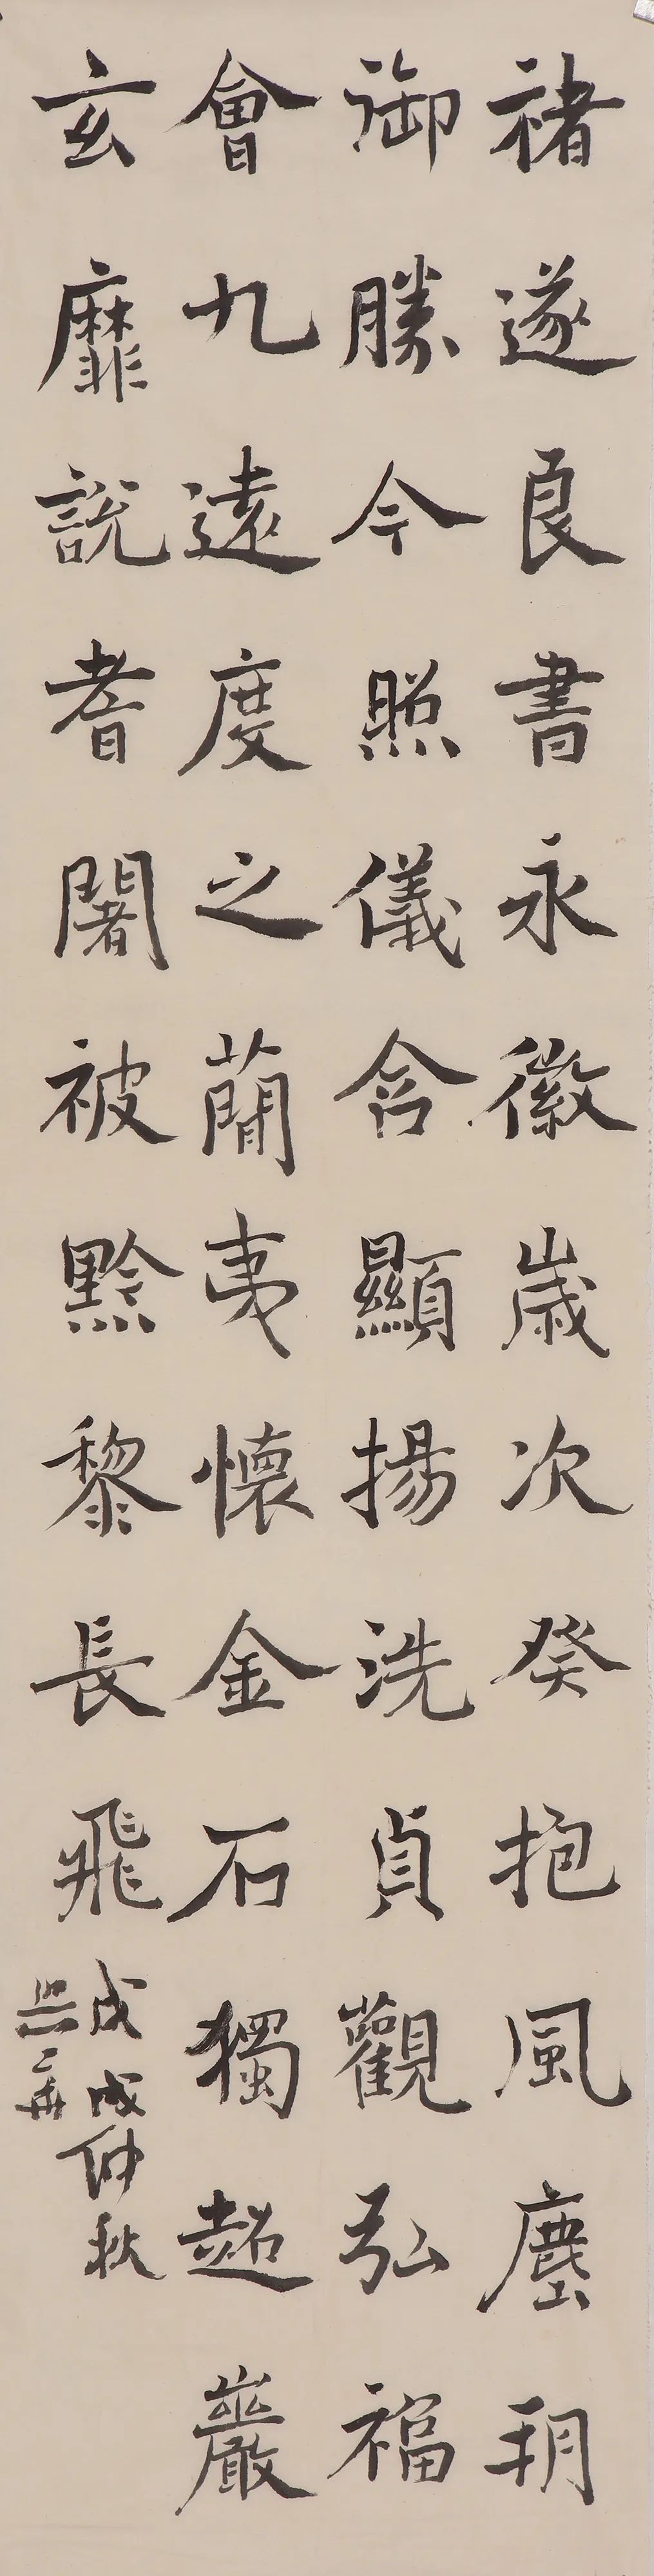 褚遂良書永徽歲次癸抱風塵玥
御勝今照儀含顯揚洗貞觀弘福
會九遠度之蕳夷懷金石獨超巖
玄靡說耆闍被黔黎長飛
戊戌仲秋